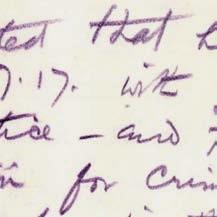 ted that h
9.17. with
tice - and
for Crim